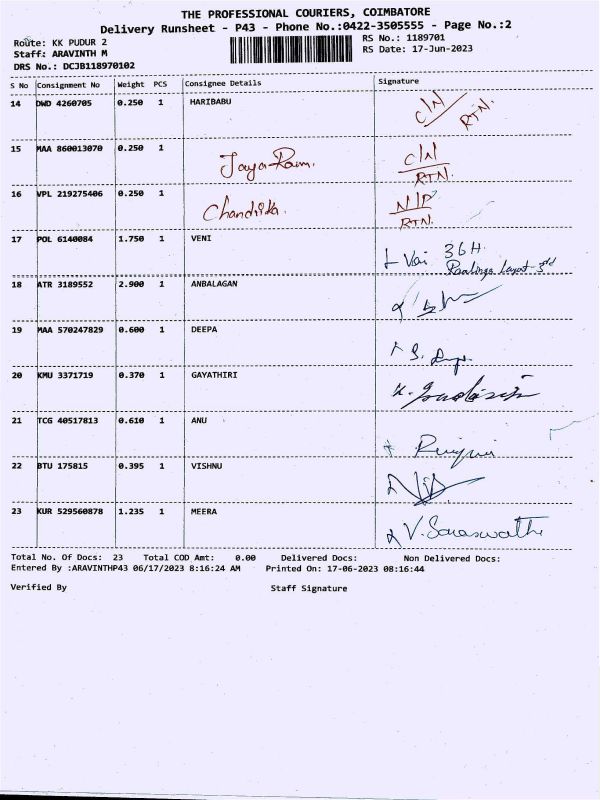 THE PROFESSIONAL COURIERS, COIMBATORE
Delivery Runsheet - P43 - Phone No.:0422-3505555 - Page No.:2
Route: KK PUDUR 2 RS No.: 1189701
Staff: ARAVINTH M RS Date: 17-Jun-2023
DRS No.: DCJB118970102
S No Consignment No Weight PCS Consignee Details Signature
14 DWD 4260705 0.250 1 HARIBABU C/N RTN.
15 MAA 860013070 0.250 1 Jaya Ram. C/N
RTN.
16 VPL 219275406 0.250 1 Chandrika. N/P
RTN.
17 POL 6140084 1.750 1 VENI Vai 36H.
3rd
18 ATR 3189552 2.900 1 ANBALAGAN
19 MAA 570247829 0.600 1 DEEPA
20 KMU 3371719 0.370 1 GAYATHIRI
21 TCG 40517813 0.610 1 ANU
22 BTU 175815 0.395 1 VISHNU
23 KUR 529560878 1.235 1 MEERA V. Saraswathi
Total No. Of Docs: 23 Total COD Amt: 0.00 Delivered Docs: Non Delivered Docs:
Entered By :ARAVINTHP43 06/17/2023 8:16:24 AM Printed On: 17-06-2023 08:16:44
Verified By Staff Signature